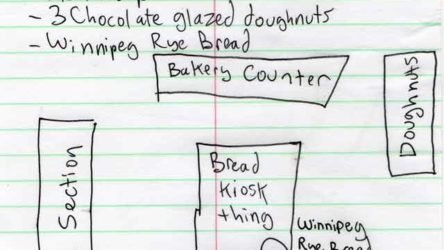 - 3 Chocolate glazed doughnuts
- Winnipeg Rye Bread
Bakery Counter
Doughnuts
Section
Bread
Kiosk
thing
Winnipeg
Rye Bread